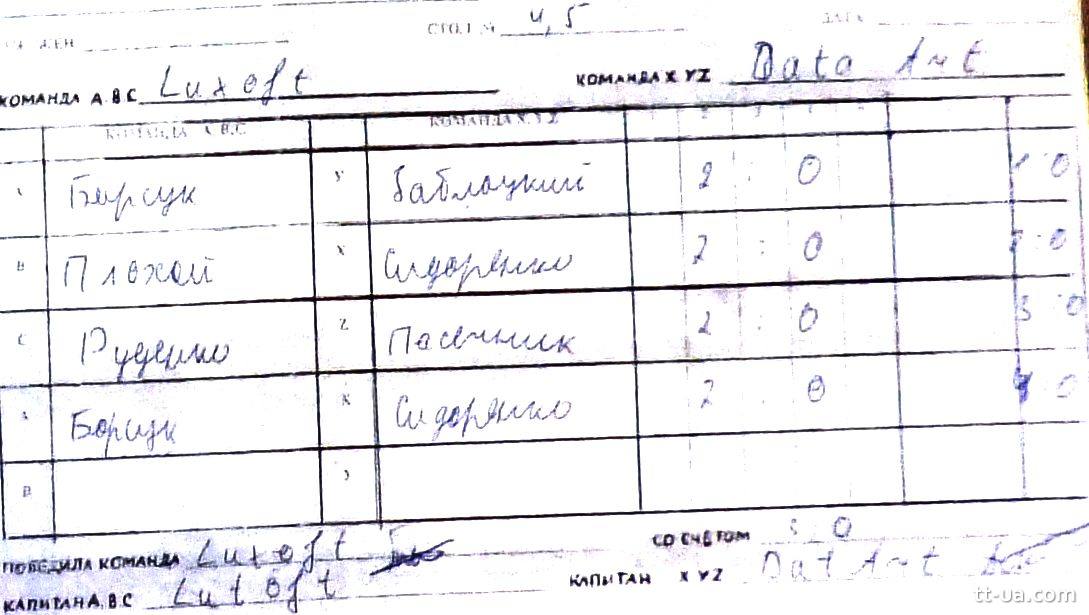 СТОЛ № 4,5 ДАТА
КОМАНДА А.В.С. Luxoft КОМАНДА X YZ Data Art
КОМАНДА А.В.С. КОМАНДА X.Y.Z
А Барсук Y Заблоцкий 2 : 0 1 0
В Плохой X Сидоренко 2 : 0 2 0
С Руденко Z Пасечник 2 : 0 3 0
А Борсук X Сидоренко 2 0 4 0
В
ПОБЕДИЛА КОМАНДА Luxoft СО СЧЁТОМ 0
КАПИТАН А.В.С Luxoft КАПИТАН X YZ DatArt
tt-ua.com